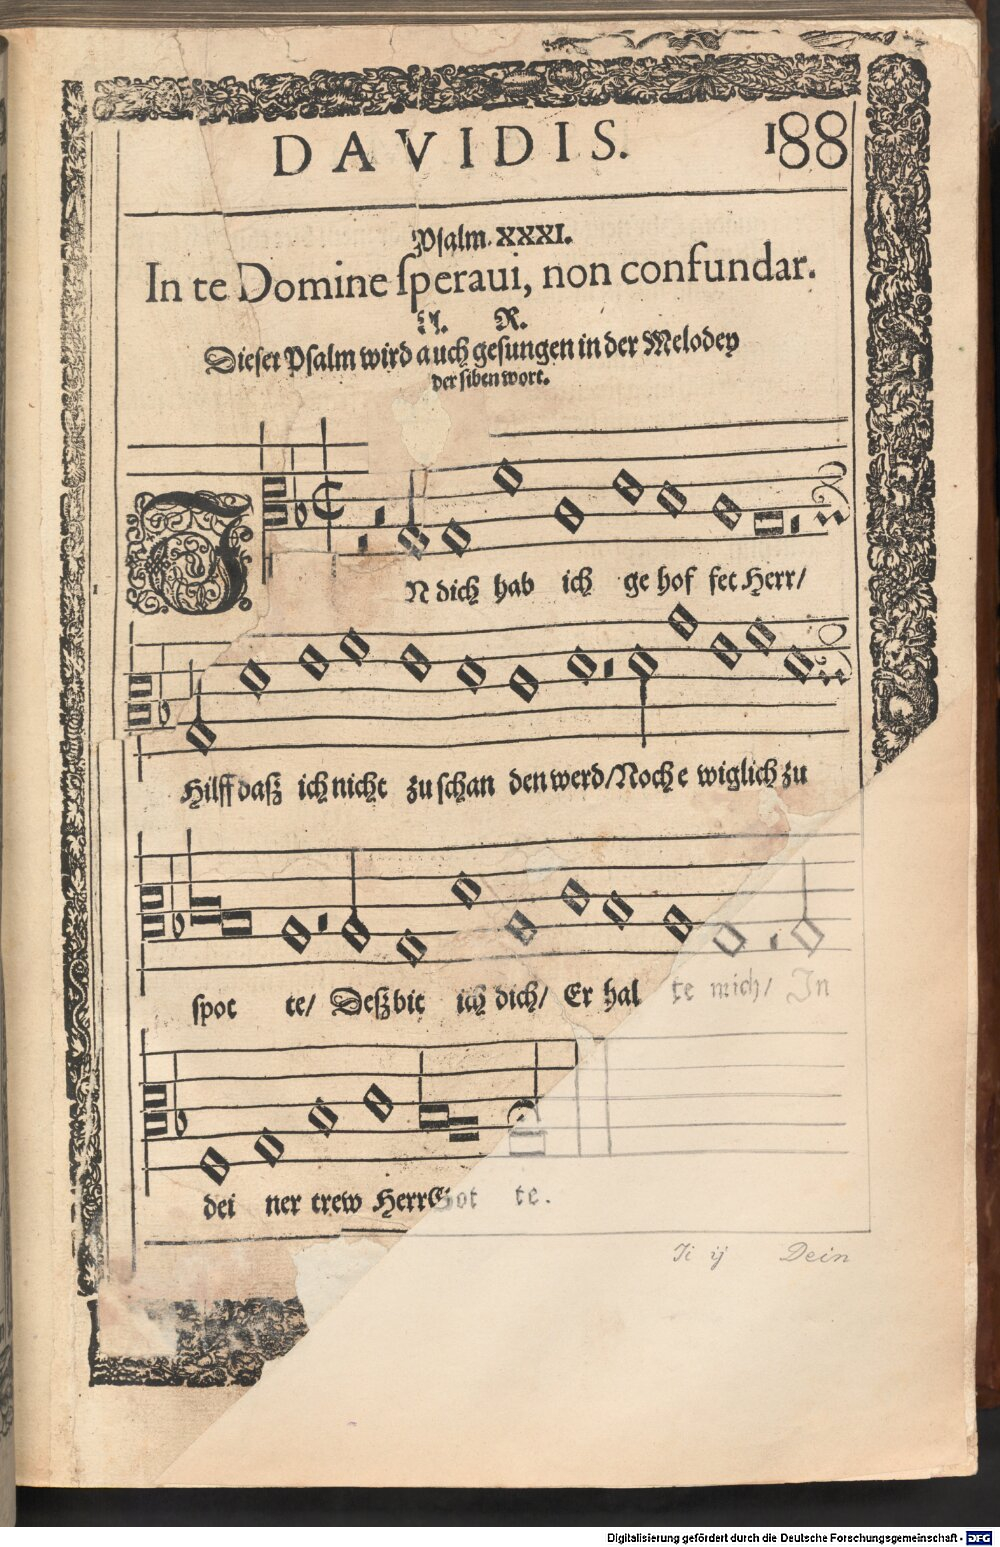 DAVIDIS. 188
Psalm. XXXI.
In te Domine ſperaui, non confundar.
A. R.
Dieſer Pſalm wird auch geſungen in der Melodey
der ſiben wort.
IN dich hab ich ge hof fet Herr/
Hilff daſz ich nicht zu ſchan den werd/Noch e wiglich zu
ſpot te/ Deſz bit ich dich/ Er hal te mich/ In
dei ner trew Herr Got te.
Ii ij Dein
Digitalisierung gefördert durch die Deutsche Forschungsgemeinschaft - DFG